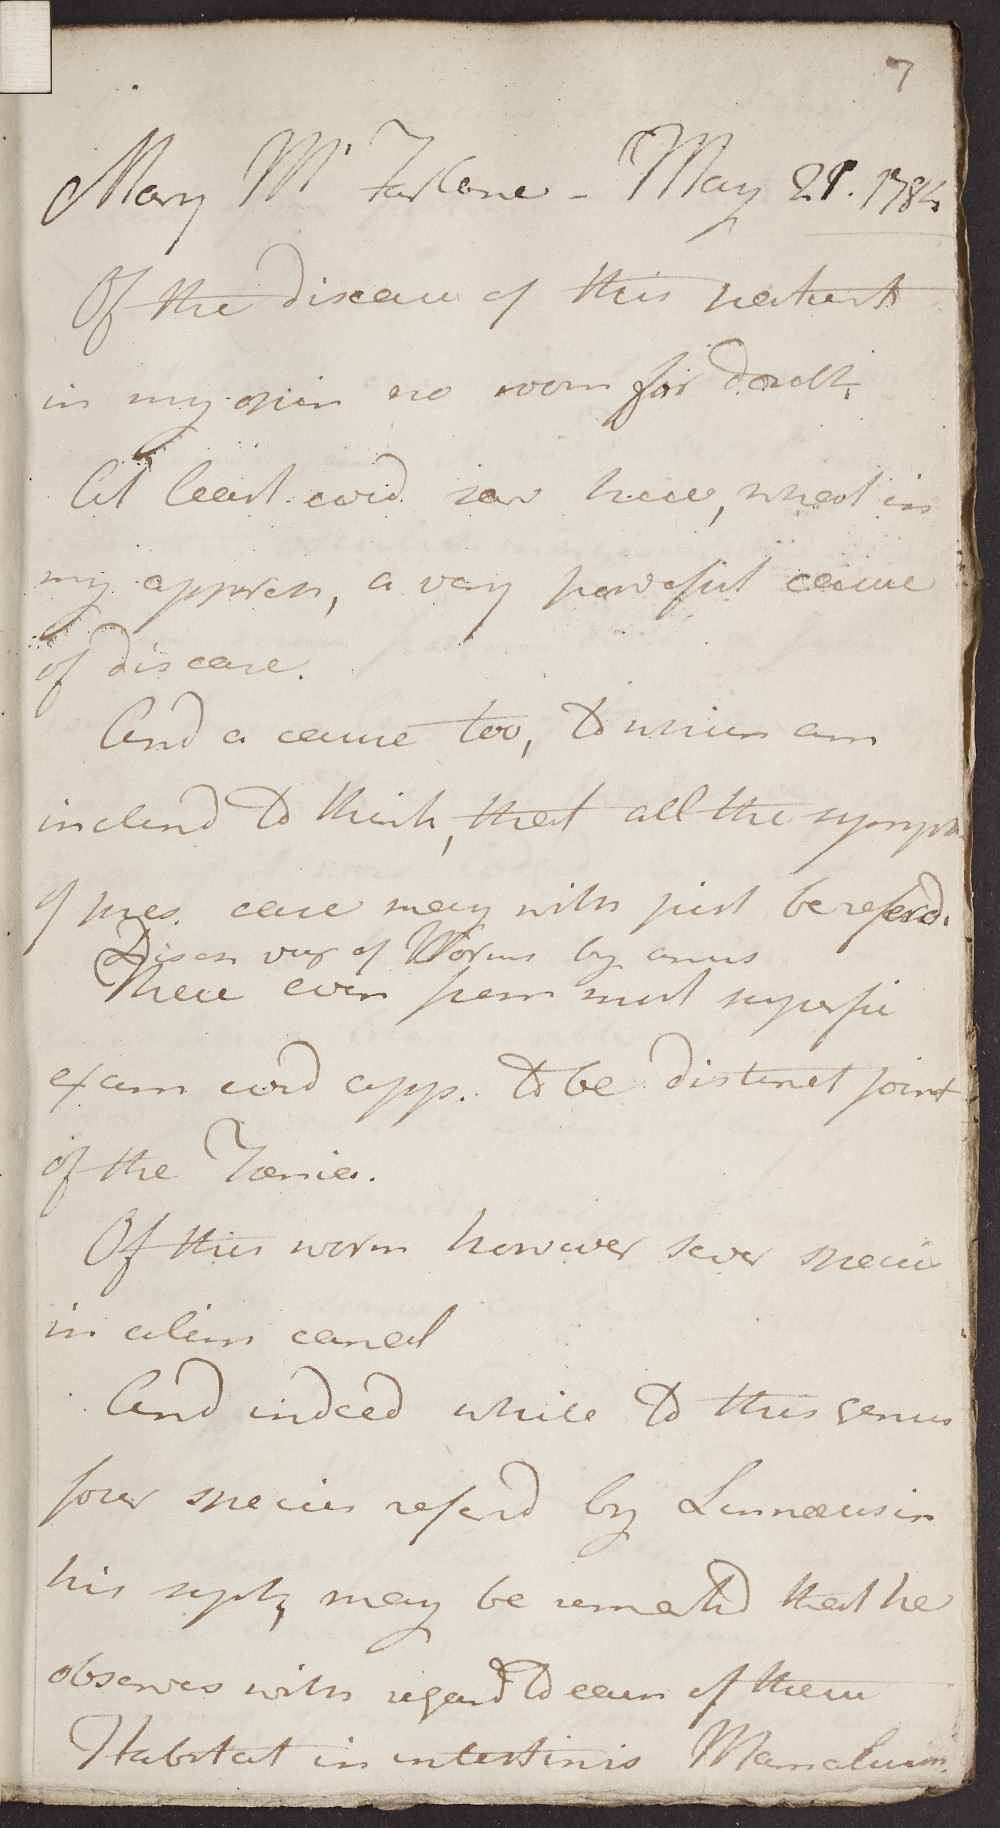 7
Mary Mc Farlane - May 21. 1784
Of the disease of this patient
in my opin no room for doubt,
At least coud see here, what in
my appreh, a very powerful cause
of disease.
And a cause too, to which am
inclend to think, that all the symp
of pres. case may with just be referd.
Disch of Worms by anus
These even from most superfi
exam coud app. to be distinct joint
of the Tænia.
Of this worm however sever species
in alim canal
And indeed while to this genus
four species referd by Linnæus in
his syst, may be remarkd that he
observes with regard to each of them
Habitat in intestinis Mamalium.